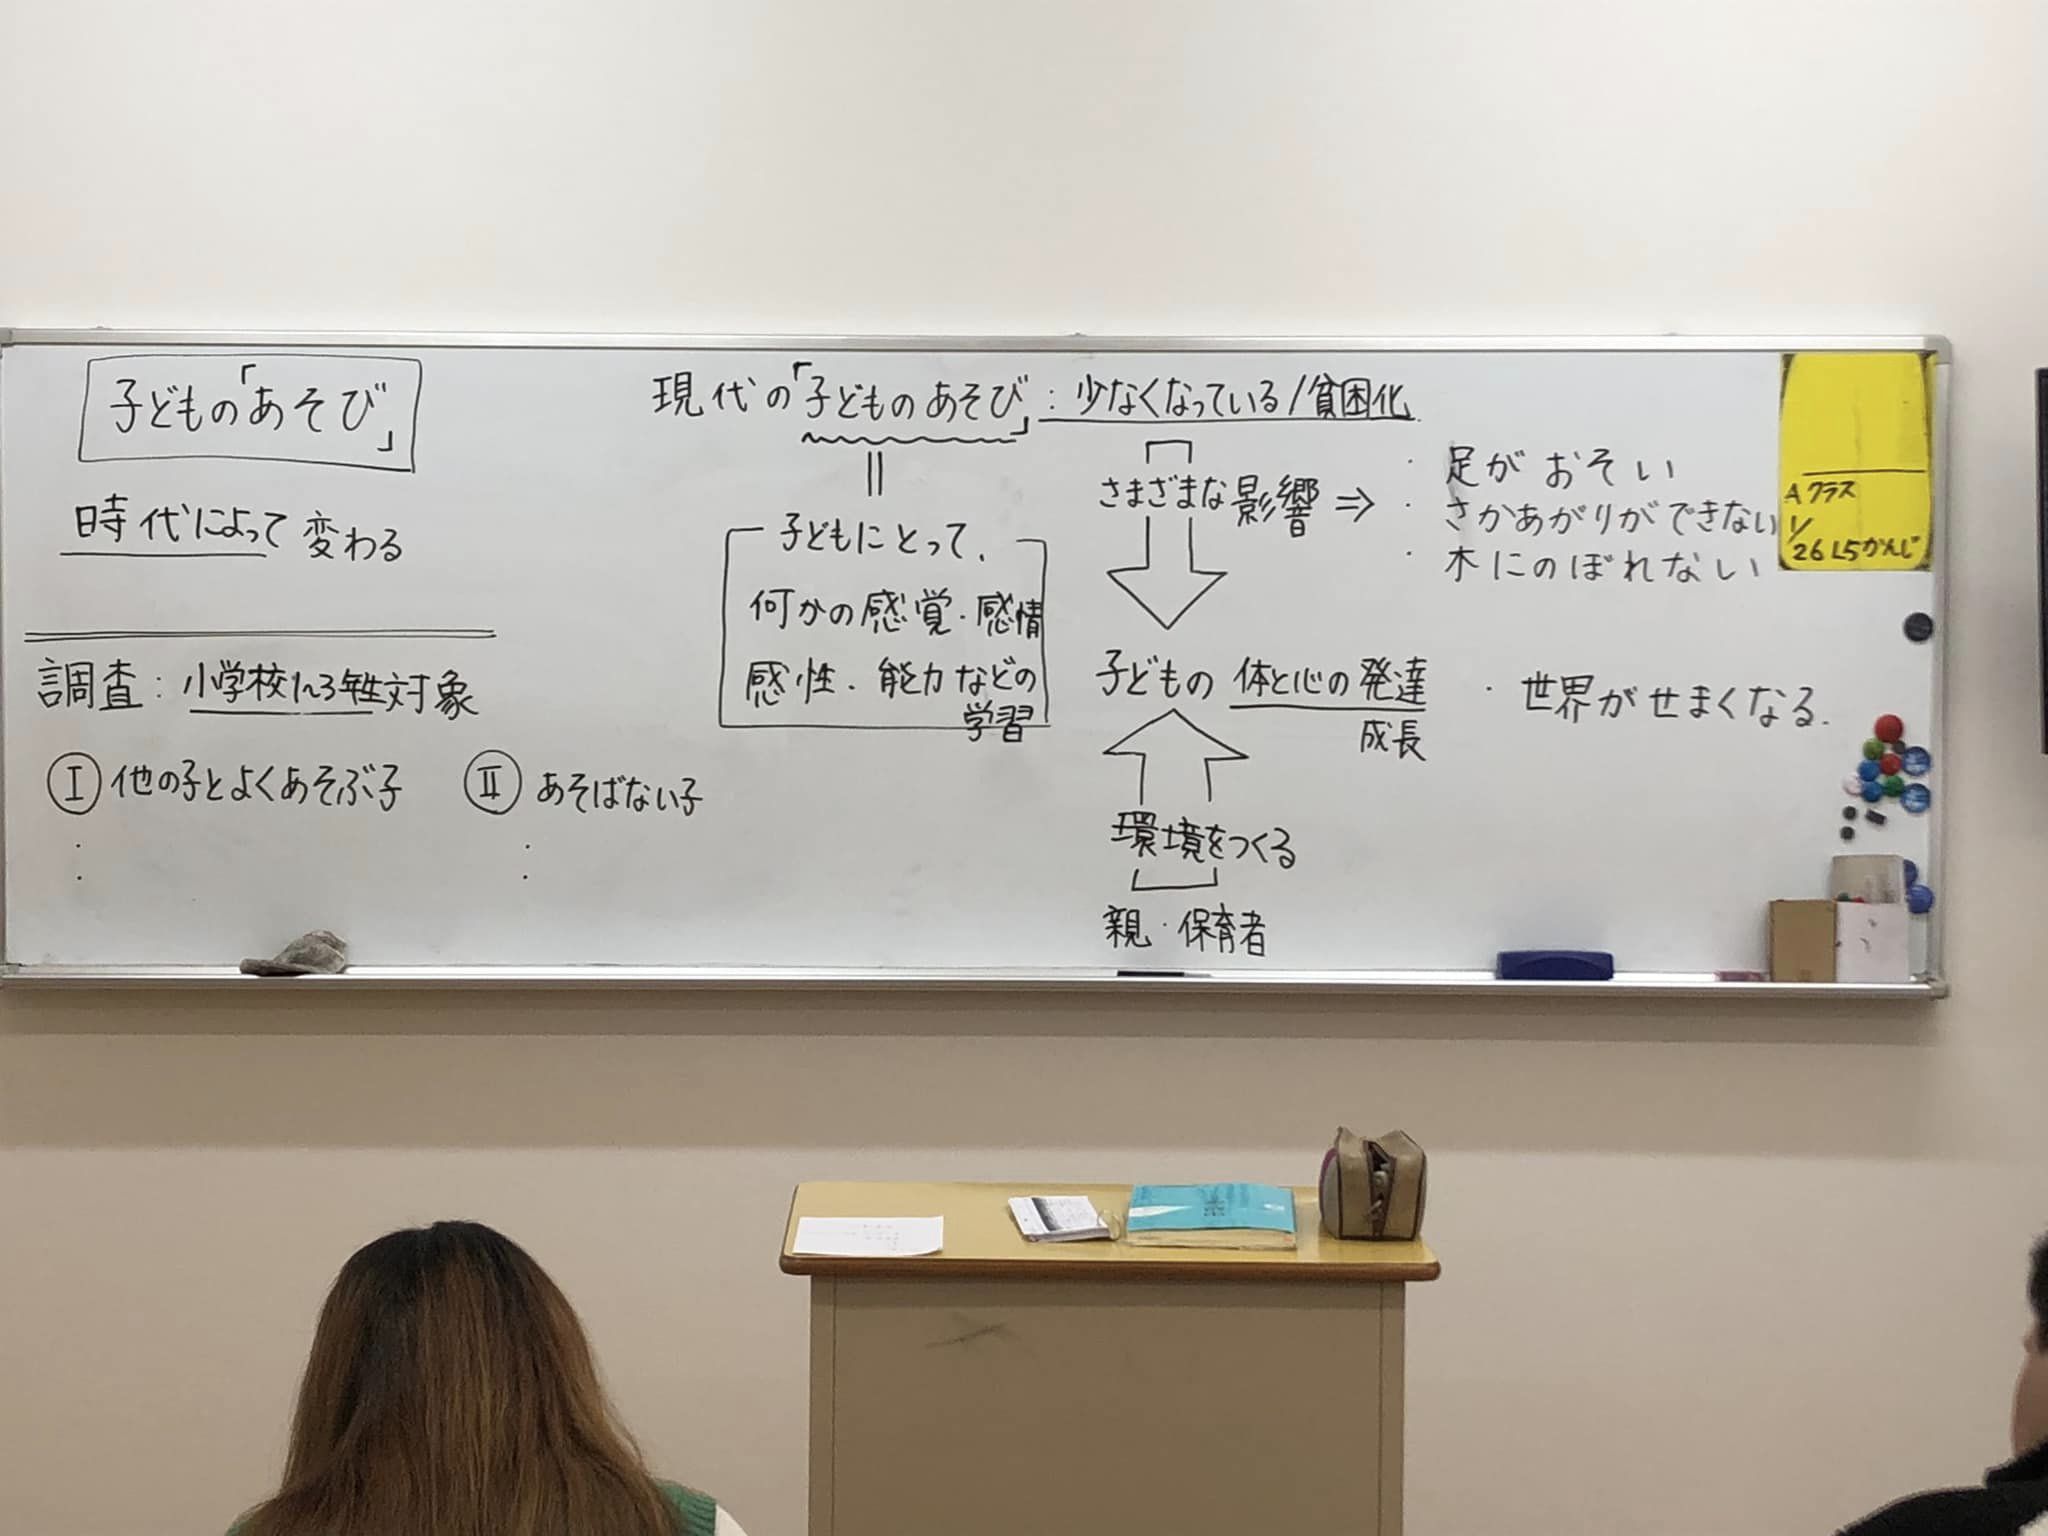 子どもの「あそび」
時代によって変わる
調査：小学校1~3年生対象
Ⅰ 他の子とよくあそぶ子
Ⅱ あそばない子
現代の「子どものあそび」：少なくなっている/貧困化
子どもにとって、
何かの感覚・感情
感性・能力などの
学習
さまざまな影響 ⇒
・足がおそい
・さかあがりができない
・木にのぼれない
子どもの 体と心の発達
成長
・世界がせまくなる.
環境をつくる
親・保育者
Aクラス
1/
26 L5かんじ